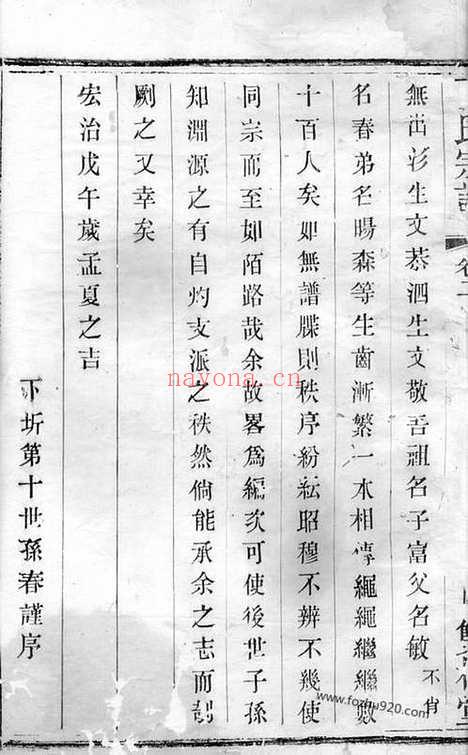 氏宗譜
卷二
無出彩生文恭泗生文敬吾祖名子富父名敏不肖
名春弟名暘森等生齒漸繁一本相傳繩繩繼繼數
十百人矣如無譜牒則秩序紛紜昭穆不辨不幾使
同宗而至如陌路哉余故畧為編次可使後世子孫
知淵源之有自灼支派之秩然倘能承余之志而
劂之又幸矣
宏治戊午歲孟夏之吉
下圻第十世孫春謹序
nayona.cn
www.fozhu920.com